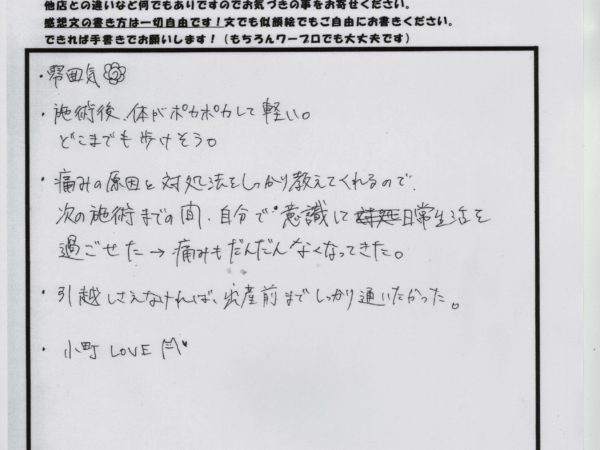 他店との違いなど何でもありですのでお気づきの事をお寄せください。
感想文の書き方は一切自由です！文でも似顔絵でもご自由にお書きください。
できれば手書きでお願いします！（もちろんワープロでも大丈夫です）
・雰囲気
・施術後、体がポカポカして軽い。
どこまでも歩けそう。
・痛みの原因と対処法をしっかり教えてくれるので、
次の施術までの間、自分で意識して日常生活を
過ごせた→痛みもだんだんなくなってきた。
・引越しさえなければ、出産前までしっかり通いたかった。
・小町 LOVE